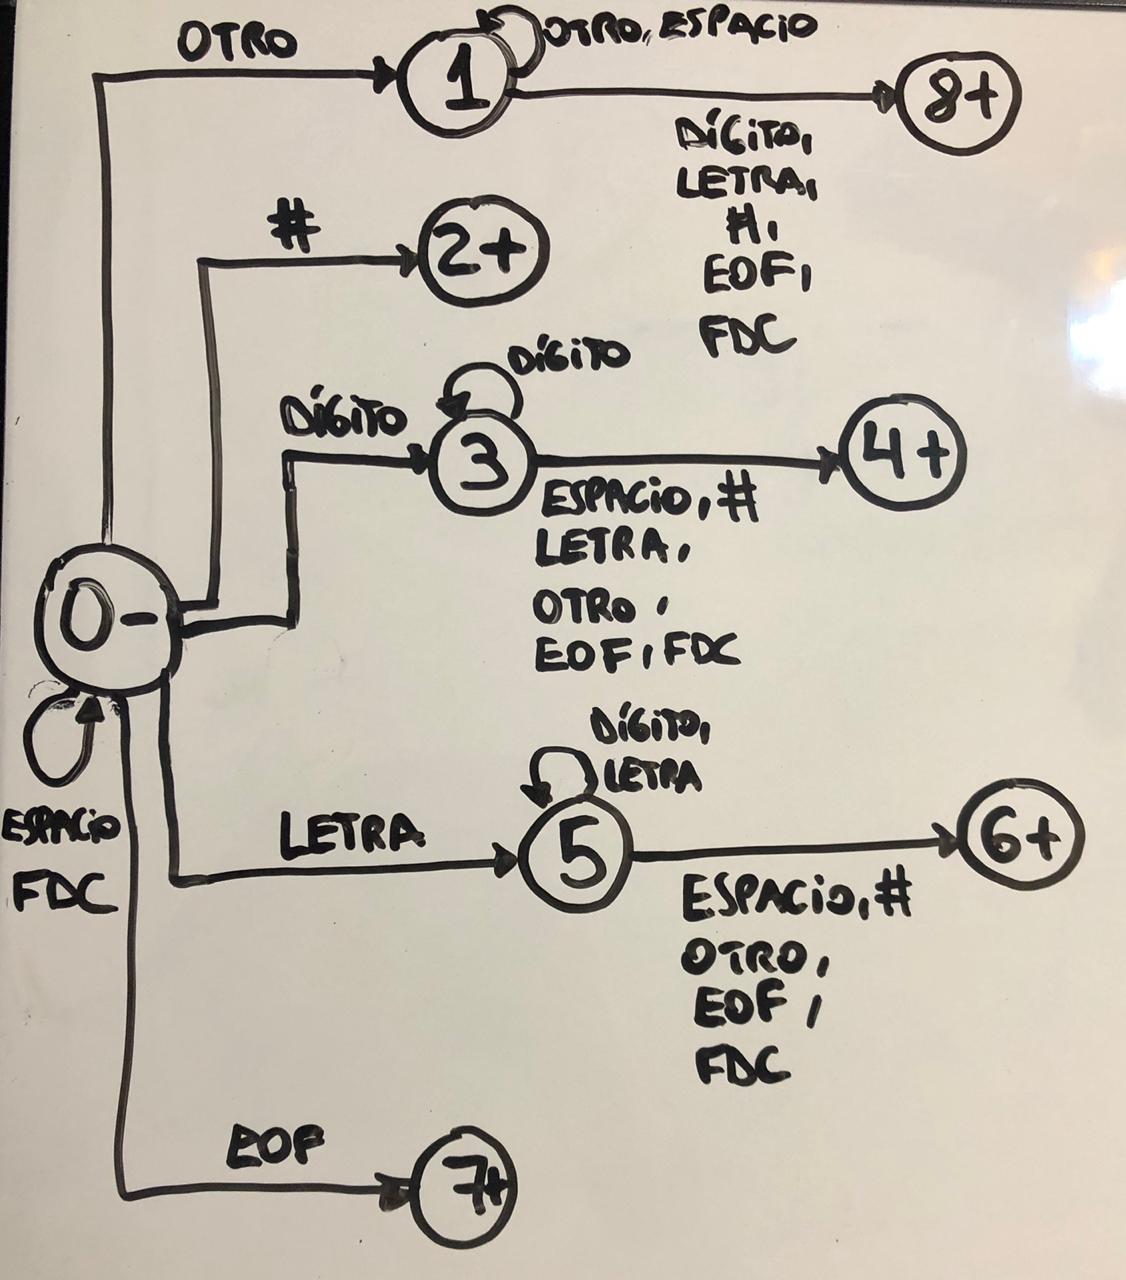 OTRO
1
OTRO, ESPACIO
8+
DÍGITO,
LETRA,
#,
EOF,
FDC
#
2+
DÍGITO
DÍGITO
3
4+
ESPACIO, #
LETRA,
OTRO,
EOF, FDC
0-
ESPACIO
FDC
DÍGITO,
LETRA
LETRA
5
6+
ESPACIO, #
OTRO,
EOF,
FDC
EOF
7+